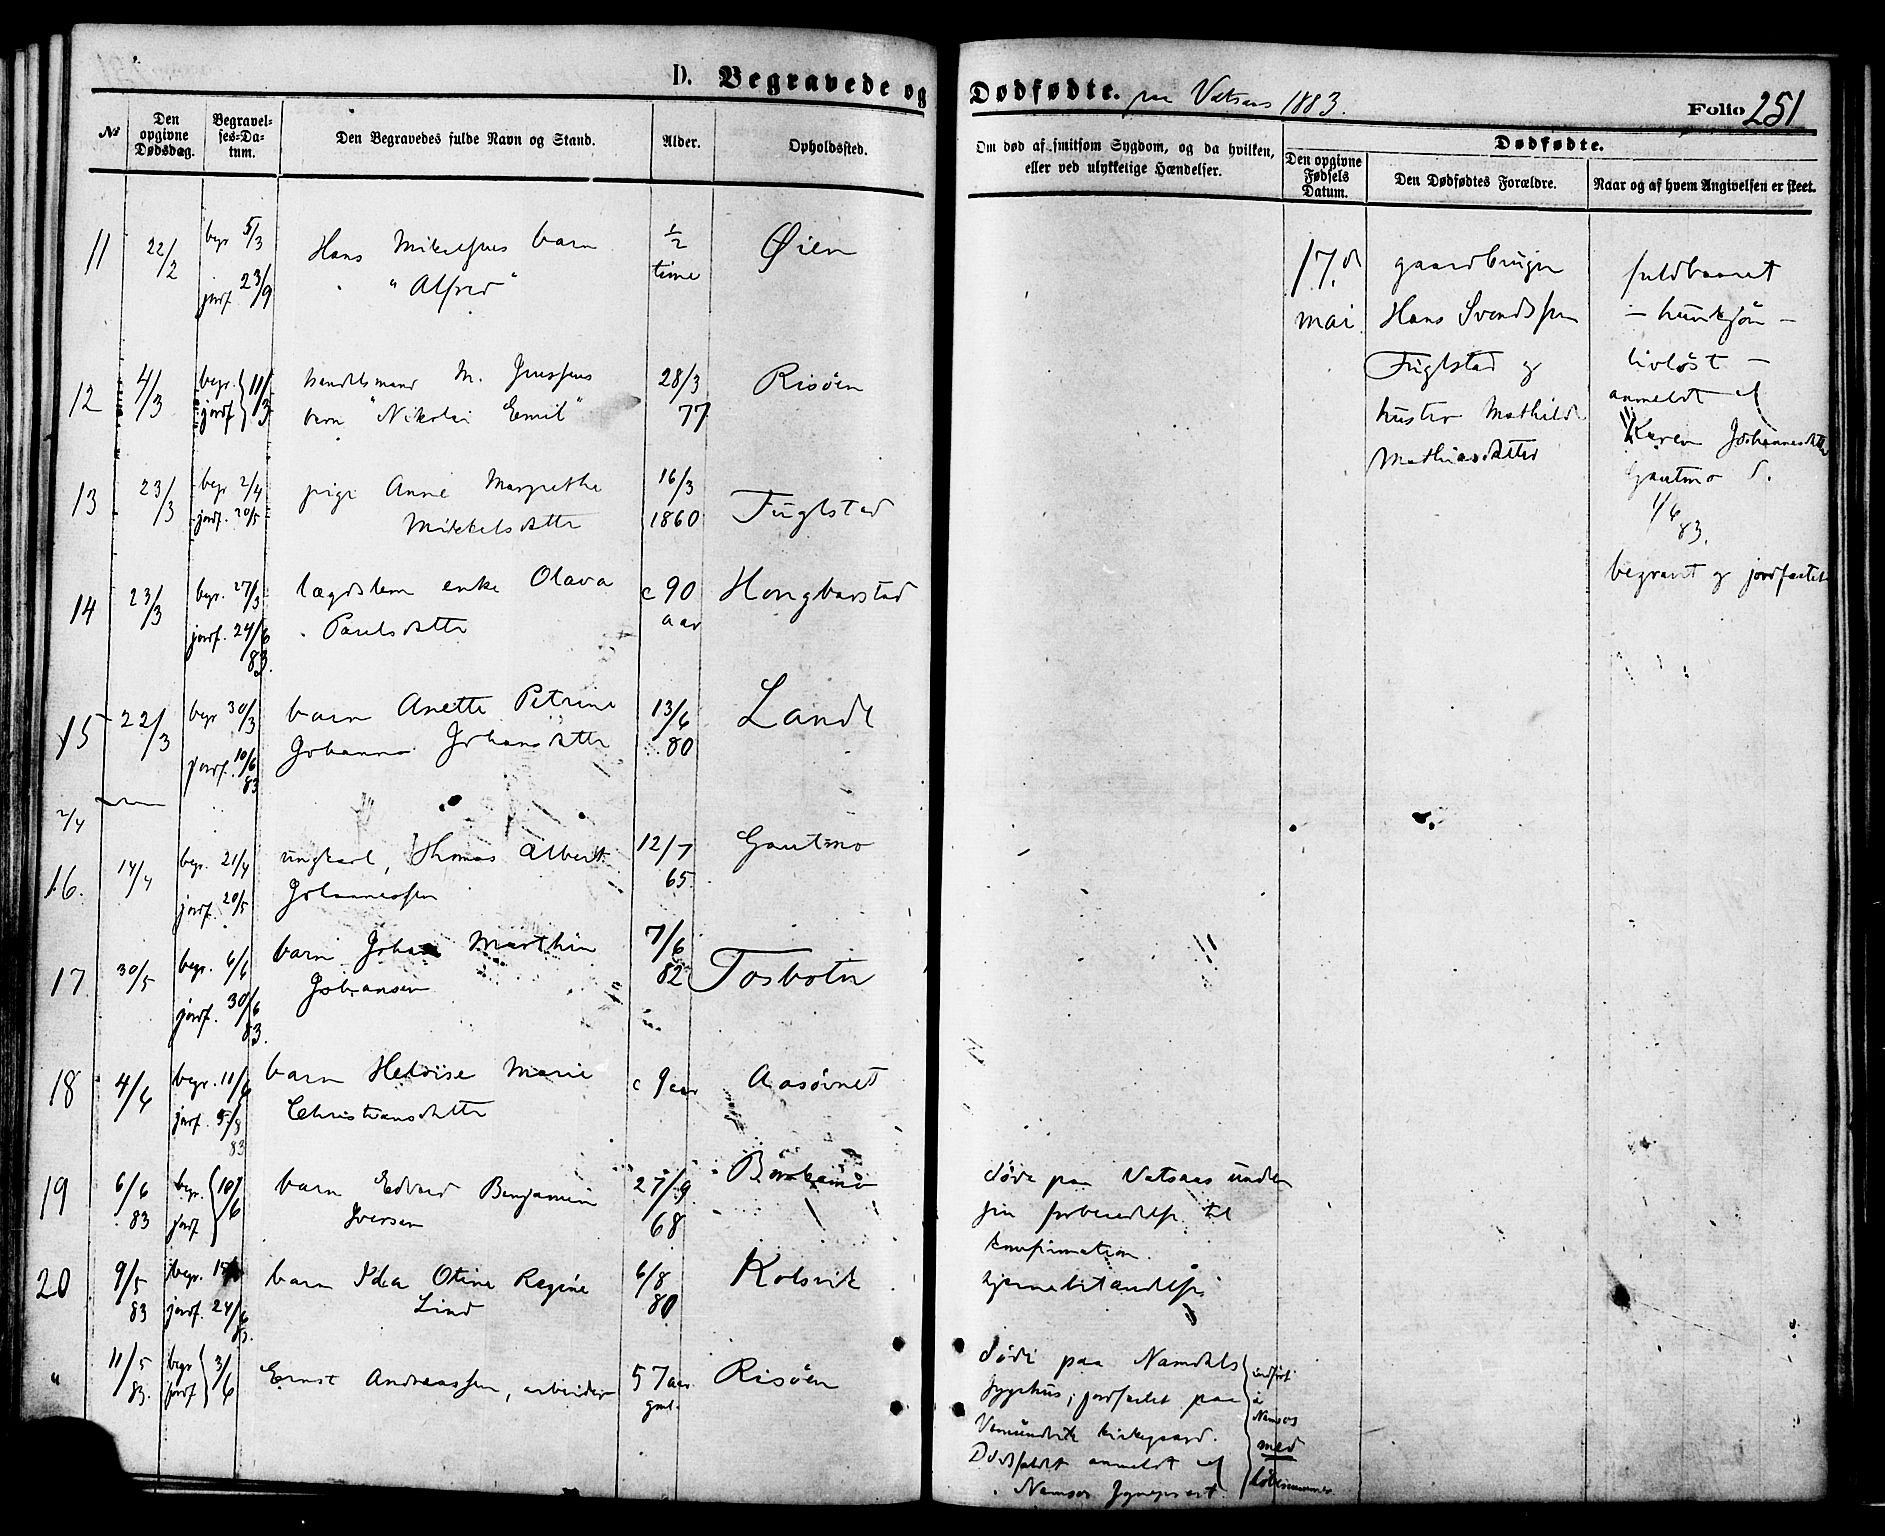 D. Begravede og Dødfødte. paa Vatsaas 1883. Folio 251
№
Den opgivne Dødsdag.
Begravelses-Datum.
Den Begravedes fulde Navn og Stand.
Alder.
Opholdssted.
Om død af smitsom Sygdom, og da hvilken,
eller ved ulykkelige Hændelser.
Dødfødte.
Den opgivne Fødsels Datum.
Den Dødfødtes Forældre.
Naar og af hvem Angivelsen er skeet.
11 22/2 begr 5/3 Hans Mikelsens barn ½ Øien
jordf. 23/9 "Alfred" time
12 4/3 begr. 11/3 handelsmand M. Jenssens 28/3 Risöen
jordf barn "Nikolai Emil" 77
13 23/3 begr 2/4 pige Anne Margrethe 16/3 Fuglstad
jordf. 20/5 Mikkelsdatter 1860
14 23/3 begr. 27/3 lægdslem enke Olava c 90 Hongbarstad
jordf. 24/6 83. Paulsdatter aar
15 22/3 begr 30/3 barn Anette Petrine 13/6 Lande
jordf. 10/6 83 Johanna Johansdatter 80
2/4
16. 14/4 begr. 21/4 ungkarl, Thomas Albert 12/7 Gautmo
jordf. 20/5 Johannessen 65
17 30/5 begr. 6/6 barn Johan Marthin 7/6 Tosbotn
jordf. 30/6 83. Johansen 82
18 4/6 begr. 11/6 barn Heloise Marie c 9 aar Aasövnet
jordf. 5/8 83 Christiansdatter
19 6/6 begr. 10/6 barn Edvard Benjamin 27/9
83 jordf Iversen 68
døde paa Vatsaas under
sin forberedelse til
konfirmation.
20 9/5 begr. barn Ida Otine Regine 6/8 Kolsvik
83 jordf. 24/6 83. Lind 80
hjernebetændelse
" 11/5 begr 3/6 Ernst Andreassen, arbeider 57 aar Risöen
83. jordf gml.
døde paa Namdals
sygehus; jordfæstet paa
Vemundvik kirkegaard.
Dødsfaldet anmeldt af
Namsos sognepræst.
indført
i
Namsos
med
löbenummer
17. de
mai
gaardbruger
Hans Svendssen
Fuglstad og
hustru Mathilde
Mathiasdatter
fuldbaaret
– kvinkjön –
livløst –
anmeldt af
Karen Johannesdatter
Gautmo d.
1/6
83.
begravet og jordfæstet